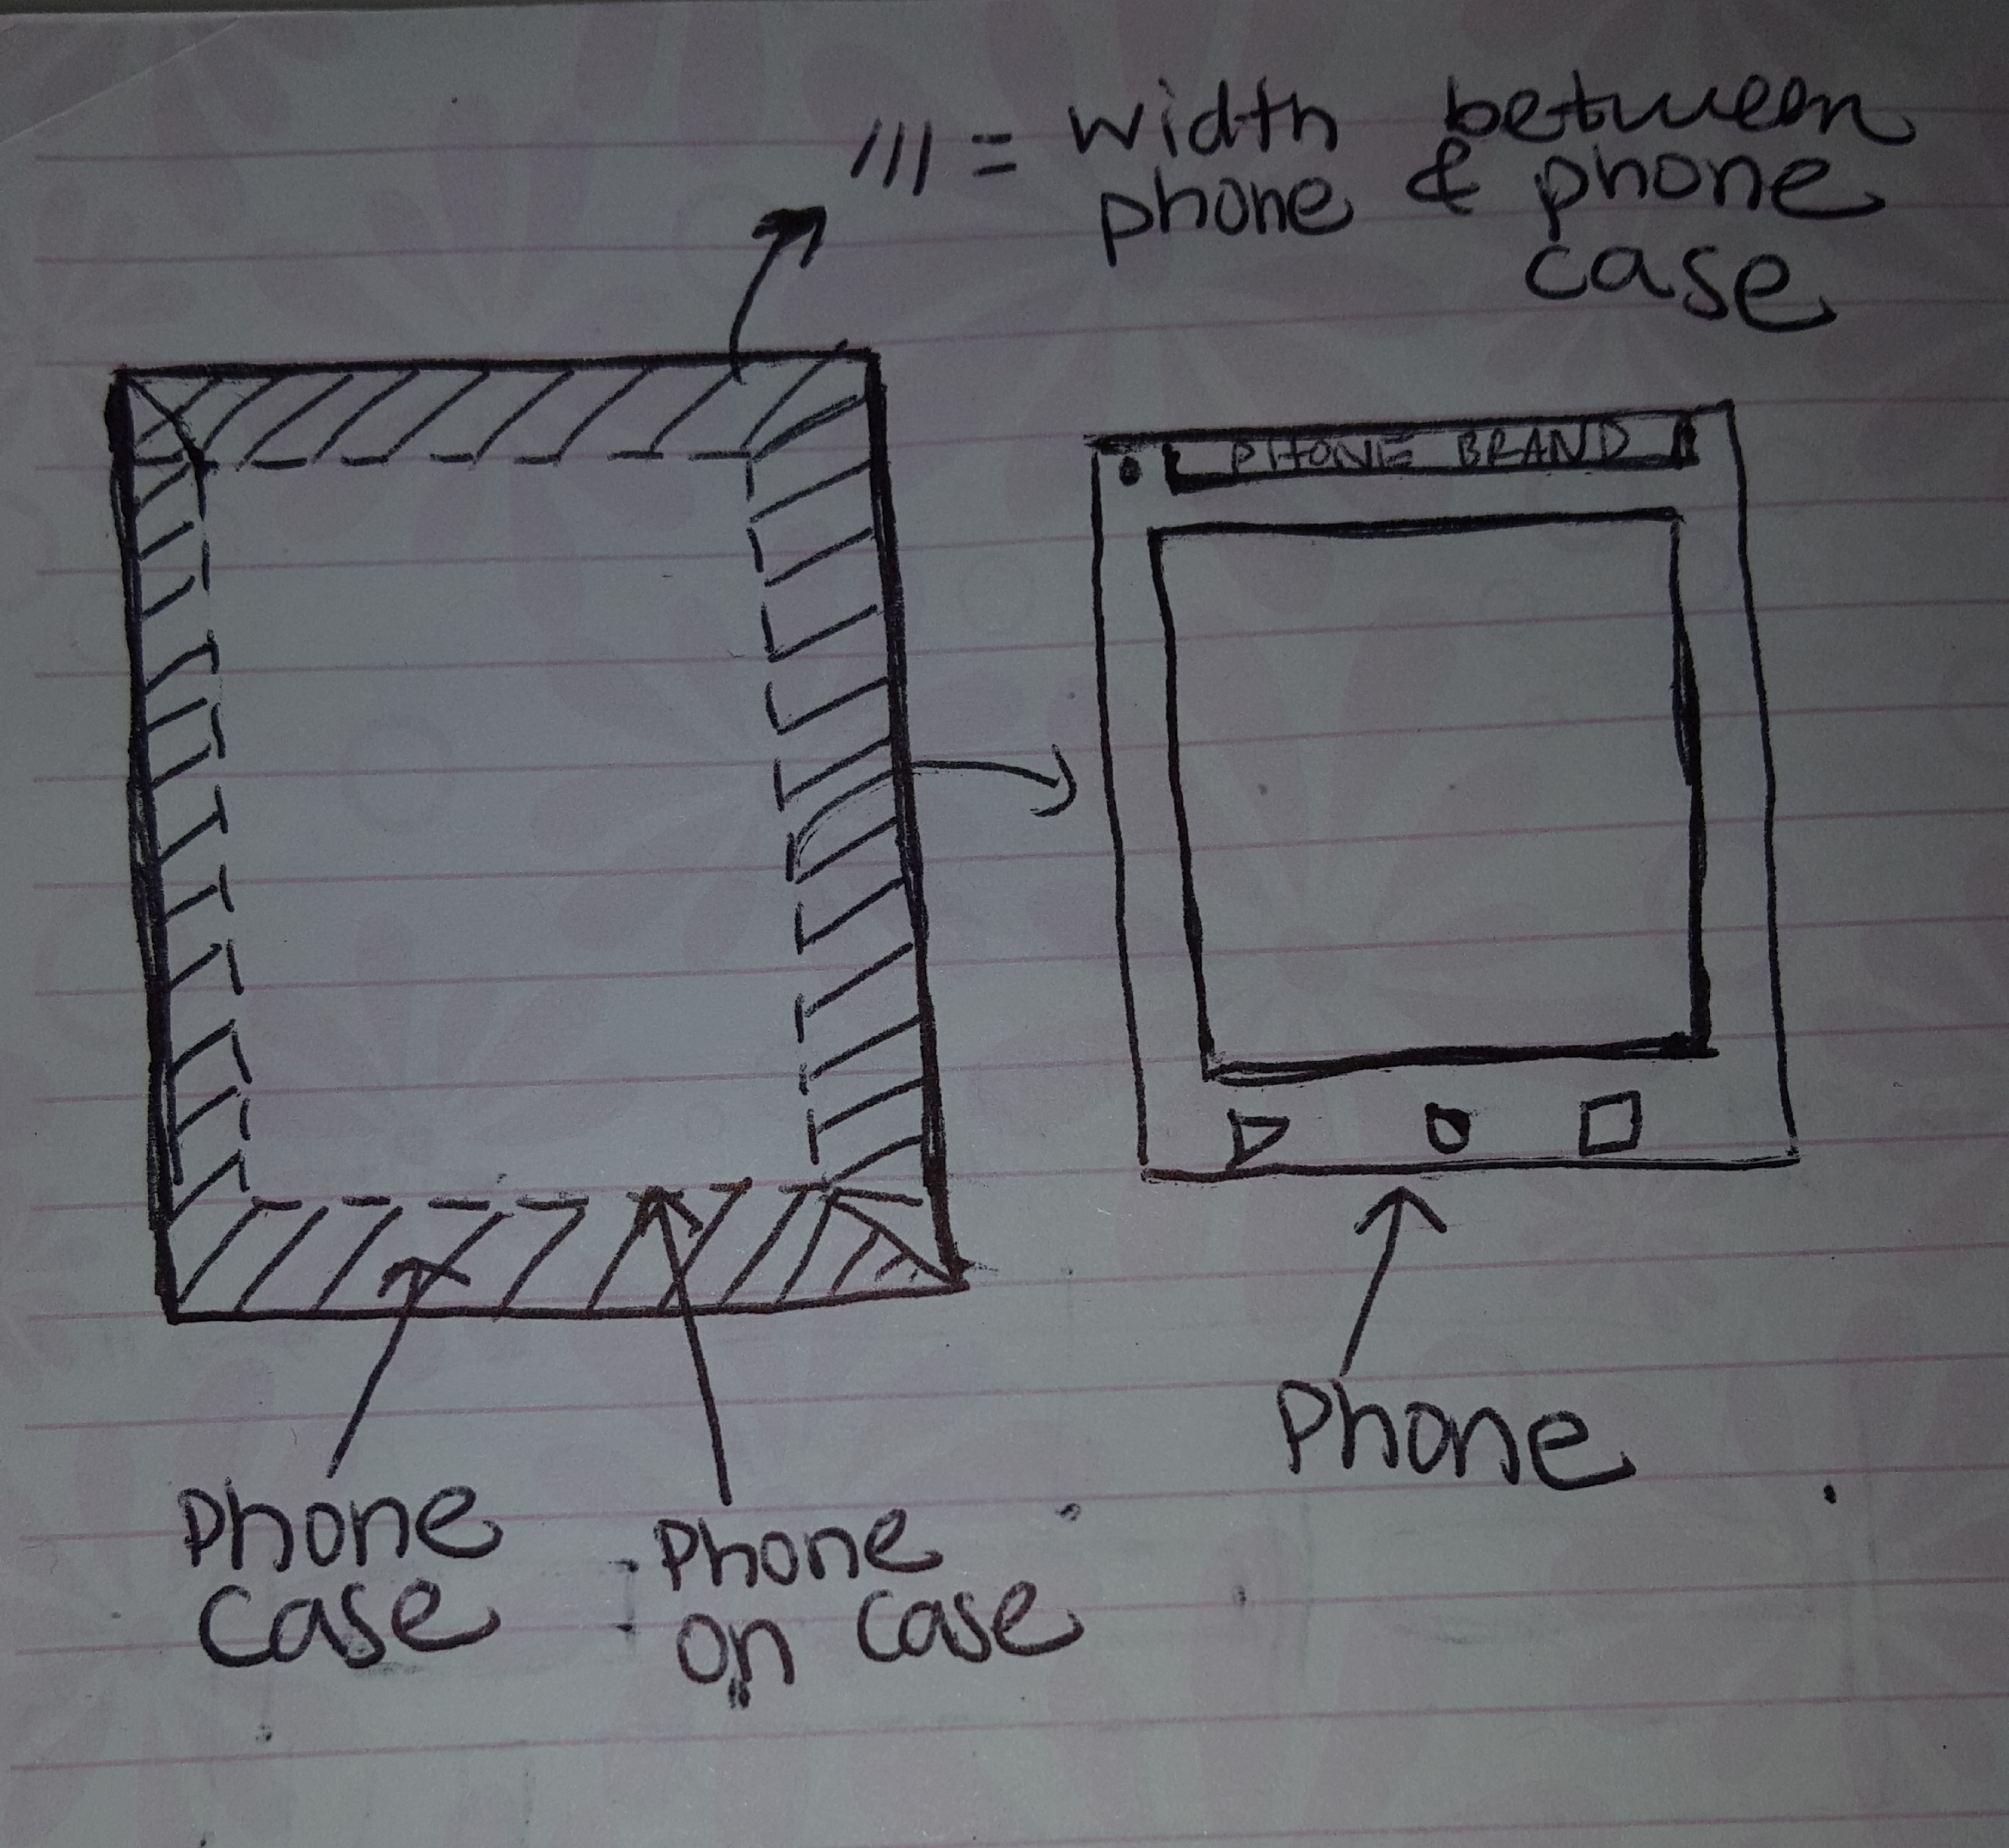 /// = width between
phone & phone
case
PHONE BRAND
Phone
Phone
case
Phone
on case